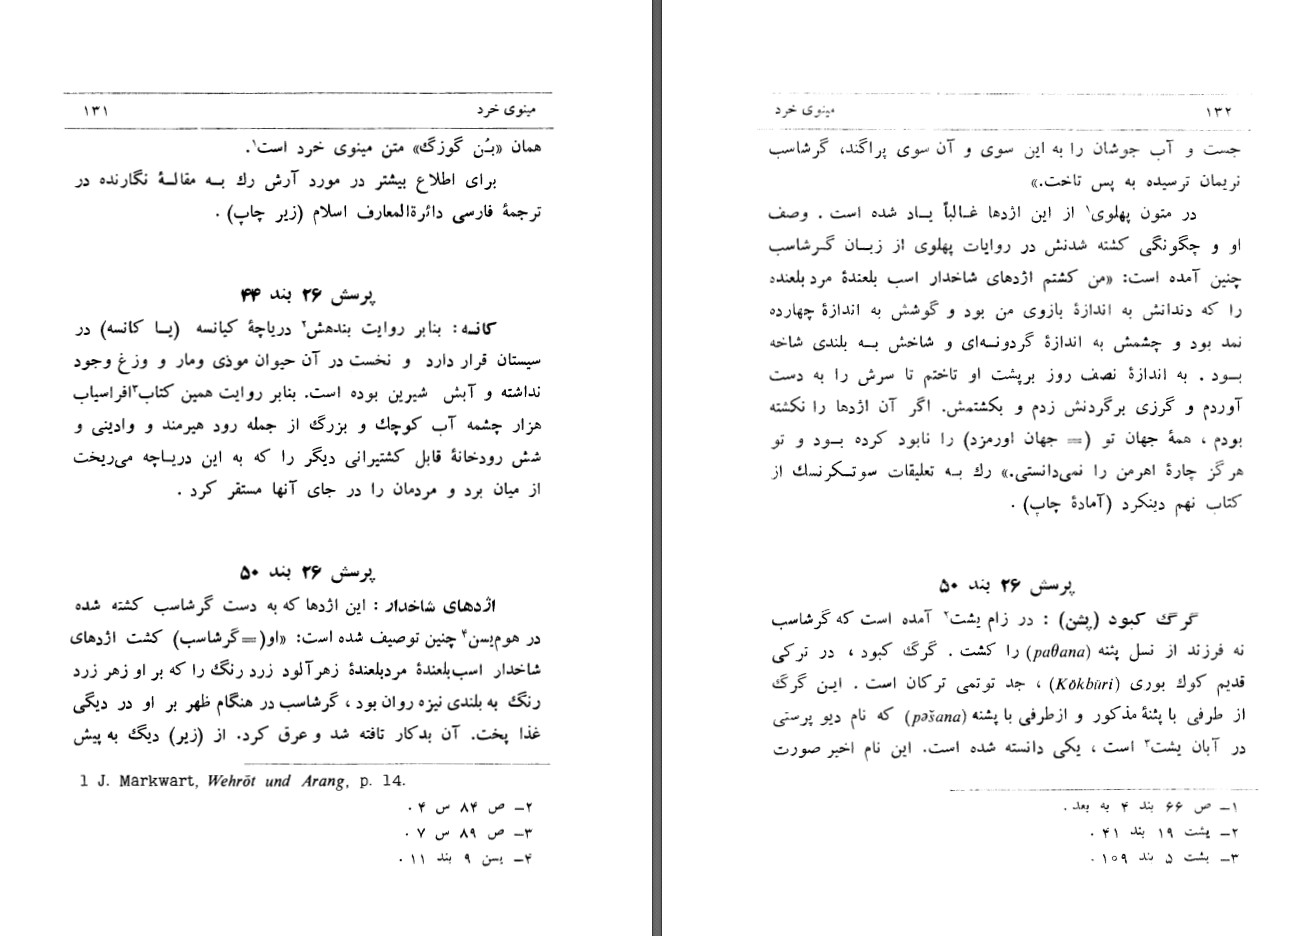 مینوی خرد ۱۳۱
همان «بُن گوزگ» متن مینوی خرد است۱.
برای اطلاع بیشتر در مورد آرش رك بـه مقالـهٔ نگارنده در
ترجمهٔ فارسی دائرةالمعارف اسلام (زیر چاپ) .
پرسش ۲۶ بند ۴۴
کانسه : بنابر روایت بندهش۲ دریاچهٔ کیانسه (یـا کانسه) در
سیستان قرار دارد و نخست در آن حیوان موذی ومار و وزغ وجود
نداشته و آبش شیرین بوده است. بنابر روایت همین کتاب۳افراسیاب
هزار چشمه آب کوچك و بزرگ از جمله رود هیرمند و وادینی و
شش رودخانهٔ قابل کشتیرانی دیگر را که به این دریاچه می‌ریخت
از میان برد و مردمان را در جای آنها مستقر کرد .
پرسش ۲۶ بند ۵۰
اژدهای شاخدار : این اژدها که به دست گرشاسب کشته شده
در هوم‌یسن۴ چنین توصیف شده است: «او(=گرشاسب) کشت اژدهای
شاخدار اسب‌بلعندهٔ مردبلعندهٔ زهرآلود زرد رنگ را که بر او زهر زرد
رنگ به بلندی نیزه روان بود ، گرشاسب در هنگام ظهر بر او در دیگی
غذا پخت. آن بدکار تافته شد و عرق کرد. از (زیر) دیگ به پیش
1 J. Markwart, Wehrōt und Arang, p. 14.
۲– ص ۸۴ س ۴ .
۳– ص ۸۹ س ۷ .
۴– یسن ۹ بند ۱۱ .
۱۳۲ مینوی خرد
جست و آب جوشان را به این سوی و آن سوی پراگند، گرشاسب
نریمان ترسیده به پس تاخت.»
در متون پهلوی۱ از این اژدها غـالباً یـاد شده است . وصف
او و چگونگی کشته شدنش در روایات پهلوی از زبـان گـرشاسب
چنین آمده است: «من کشتم اژدهای شاخدار اسب بلعندهٔ مرد بلعنده
را که دندانش به اندازهٔ بازوی من بود و گوشش به اندازهٔ چهارده
نمد بود و چشمش به اندازهٔ گردونـه‌ای و شاخش بـه بلندی شاخه
بـود . به اندازهٔ نصف روز برپشت او تاختم تا سرش را به دست
آوردم و گرزی برگردنش زدم و بکشتمش. اگر آن اژدها را نکشته
بودم ، همهٔ جهان تو (= جهان اورمزد) را نابود کرده بـود و تو
هرگز چارهٔ اهرمن را نمی‌دانستی.» رك بـه تعلیقات سوتـکرنسك از
کتاب نهم دینکرد (آمادهٔ چاپ) .
پرسش ۲۶ بند ۵۰
گرگ کبود (پشن) : در زام یشت۲ آمده است که گرشاسب
نه فرزند از نسل پثنه (paθana) را کشت . گرگ کبود ، در ترکی
قدیم کوك بوری (Kökbüri) ، جد توتمی ترکان است . ایـن گرگ
از طرفی با پثنهٔ مذکور و ازطرفی با پشنه (pəšana) که نام دیو پرستی
در آبان یشت۳ است ، یکی دانسته شده است. این نام اخیر صورت
۱– ص ۶۶ بند ۴ به بعد .
۲– یشت ۱۹ بند ۴۱ .
۳– یشت ۵ بند ۱۰۹ .